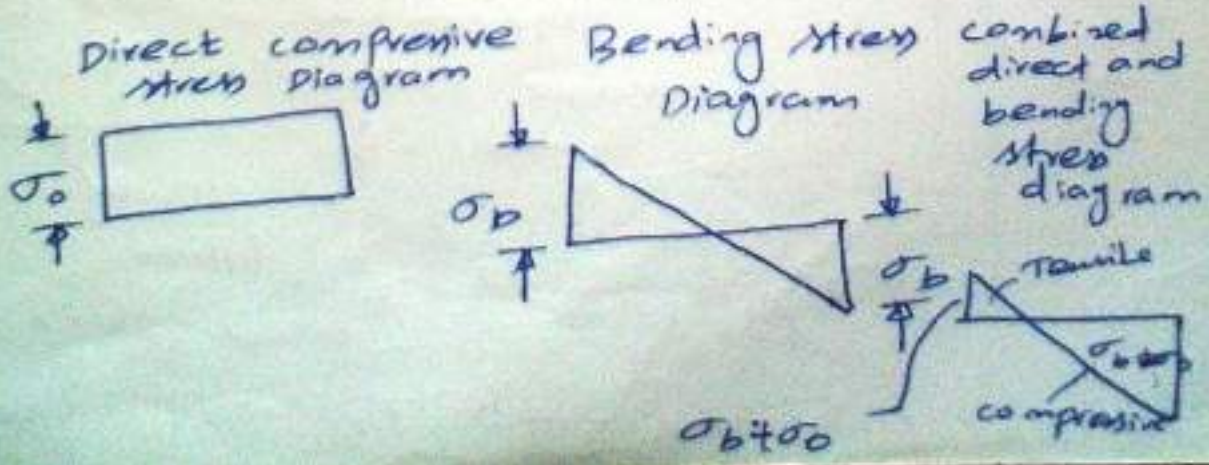 Direct compressive
stress Diagram
σo
Bending stress
Diagram
σb
σb
combined
direct and
bending
stress
diagram
Tensile
compressive